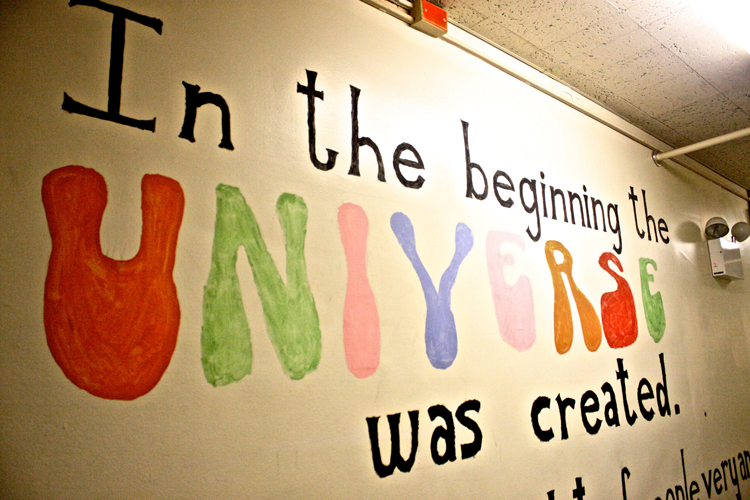 In the beginning the
UNIVERSE
was created.
people very an